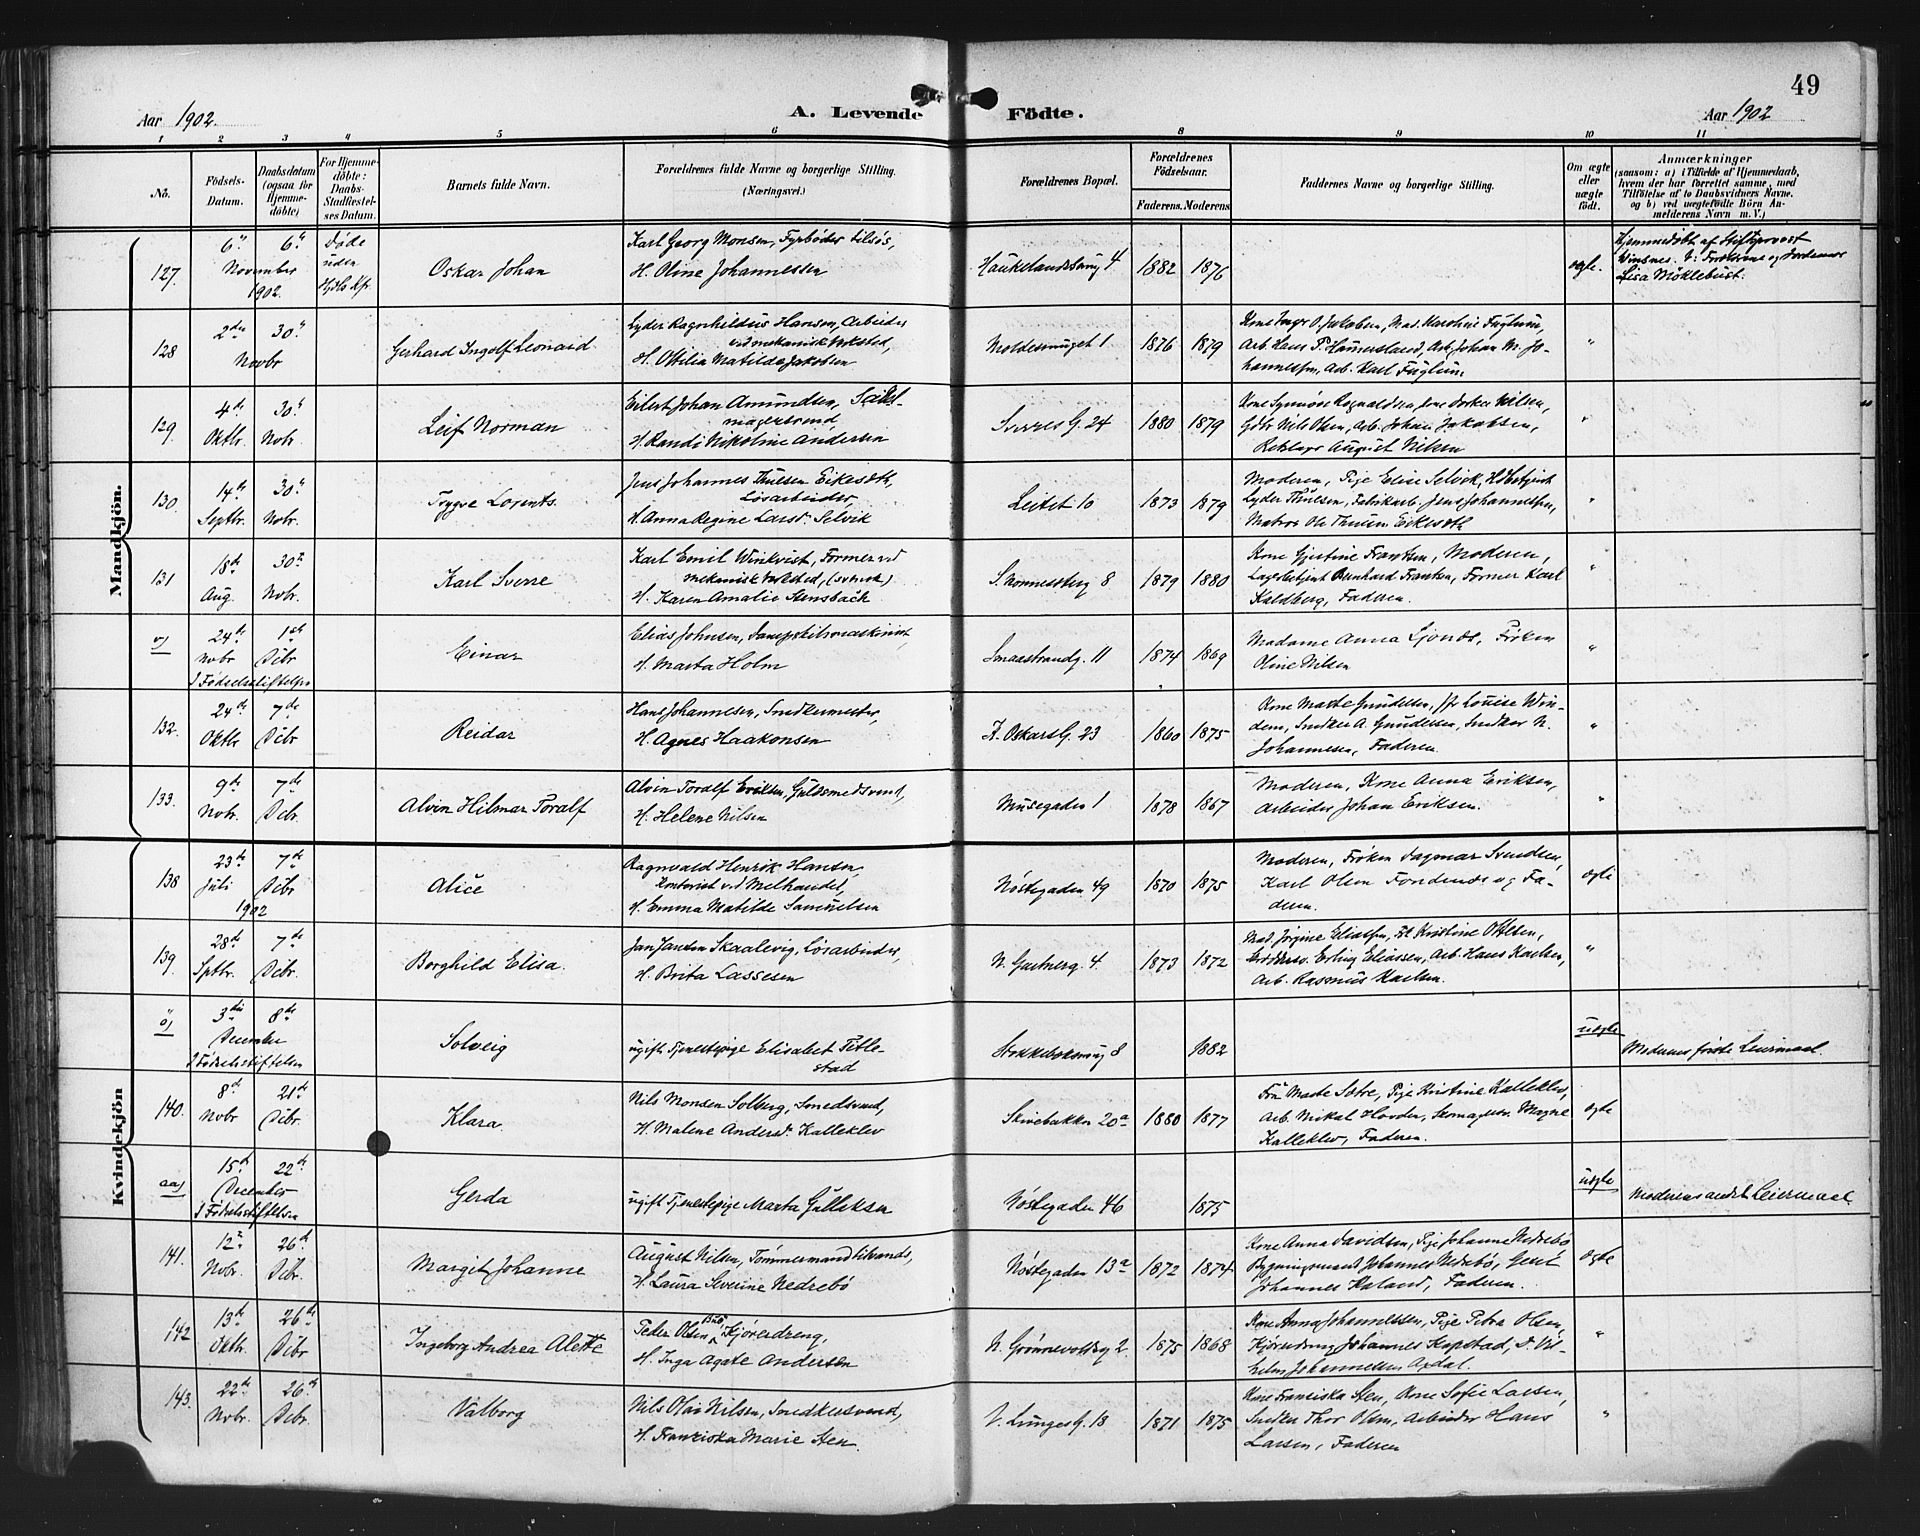 49
Aar 1902.
A. Levende Födte.
Aar 1902
1 2 3 4 5 6 8 9 10 11
No.
Födsels-Datum.
Daabsdatum (ogsaa for Hjemmedöbte)
For Hjemmedöbte: Daabs-Stadfæstelses Datum.
Barnets fulde Navn.
Forældrenes fulde Navne og borgerlige Stilling. (Næringsvei.)
Forældrenes Bopæl.
Forældrenes Födselsaar.
Faderens. Moderens
Faddernes Navne og borgerlige Stilling.
Om ægte eller uægte födt.
Anmærkninger
(saasom: a) i Tilfælde af Hjemmedaab, hvem der har forrettet samme, med Tilföielse af to Daabsvidners Navne, og b) ved uægtefödte Börn Anmelderens Navn m. V.)
Mandkjön.
127. 6 6 November 1902. Døde uden
Oskar Johan
Karl Georg Monsen, Fyrbøder tilsøs,
H. Oline Johannessen
Haukelandsvei 4 1882 1876
ægte.
Hjemmedøbt af Stiftsprovst
Lisa Møklebust.
128 2den 30 Novbr
Gerhard Ingolf Leonard
Lyder Ragnhildius Hansen, Arbeider
ved mekanisk Værksted,
H. Ottilia Matilde Jakobsen
Moldesmuget 1 1876 1879
Kone Inger O. Jakobsen, Mad. Karoline Fuglum,
Arb. Hans P. Hamersland, Arb. Johan M. Jo-
hannessen, Arb. Karl Fuglum.
"
129 4de Oktbr. 30 Nobr.
Leif Norman
Eilert Johan Amundsen,
H. Randi Nikoline Andersen
Sverres G. 24 1880 1879
Nils Olsen, Arb. Johan Jakobsen,
August Nilsen
"
130. 14de Septbr. 30 Nobr.
Trygve Lorents.
Jens Johannes Thuesen Eikeseth,
Løsarbeider,
H. Anna Regine Larsd. Selvik
Leitet 10 1873 1879
Moderen, Pige Elise Selvik,
Lyder Thuesen, Fabrikarb. Jens Johannessen,
Matros Ole Thuesen Eikeseth
"
131 18de Aug. 30te Nobr.
Karl Sverre
Karl Emil Winkvist, Former ved
mekanisk Værksted, (svensk)
H. Karen Amalie Stensbach
St. Nonnesberg 8 1879 1880
Kone Gjertine Frantzen, Moderen,
Bernhard Frantzen, Former Karl
Kaldberg, Faderen.
"
24de Nobr 1ste Dcbr
I Fødselsstiftelsen
Einar
Elias Johnsen,
H. Marta Holm
Smaastrandg. 11 1874 1869
Madame Anna Frøken
Oline Nilsen
"
132. 24de Oktbr 7de Dcbr
Reidar
Hans Johannesen, Snedkermester,
H. Agnes Haakonsen
K. Oskars G. 23 1860 1875
Kone Marte Gundersen, Louise Win-
dem, Snedker A. Gundersen, Snedker N.
Johannesen, Faderen.
"
133. 9de Nobr. 7de Dcbr.
Alvin Hilmar Toralf
Alvin Toralf Eriksen, Guldsmedsvend,
H. Helene Nilsen
Musegaden 1 1878 1867
Moderen, Kone Anna Eriksen,
Arbeider Johan Eriksen.
"
Kvindekjön
138 23de Juli 7de Dcbr 1902
Alice
Ragnvald Henrik Hansen
Kontorist ved Melhandel,
H. Emma Matilde Samuelsen
Nøstegaden 49 1870 1875
Moderen, Frøken Dagmar Svendsen,
Karl Olsen og Fa-
deren.
ægte
139. 28de Septbr. 7de Dcbr.
Borghild Elisa.
Jan Jansen Skaalevig, Løsarbeider,
H. Brita Lassesen
N. Gartnerg. 4. 1873 1872
Mad. Jørgine Eliassen, Kristine Ottesen,
Erling Eliassen, Arb. Hans Karlsen,
Arb. Rasmus Karlsen.
"
3die 8de December
I Fødselsstiftelsen
Solveig
ugift Tjenestepige Elisabet Title-
stad
8 1882
uægte
Moderens første Leiermaal.
140. 8de Nobr 21de Dcbr.
Klara.
Nils Monsen Solberg, Smedsvend,
H. Malene Andersd. Kalleklev
Skivebakken 20a 1880 1877
Fru Marte Sætre, Pige Kristine Kalleklev,
Arb. Mikal Hovden, Skomagersv. Magne
Kalleklev, Faderen.
ægte
aa) 15de 22de December
I Fødselsstiftelsen
Gerda
ugift Tjenestepige Marta Gulleksen
Nøstegaden 46 1875
uægte
Moderens andet Leiermaal
141. 12te Nobr. 26de Dcbr.
Margit Johanne
August Nilsen, Tømmermand tilvands,
H. Laura Severine Nedrebø
Nøstegaden 13a 1872 1874
Kone Anna Davidsen, Pige Johanne Nedrebø
Bygningsmand Johannes Nedrebø, Gent
Johannes Haland, Faderen.
ægte
142 13de Oktbr. 26de Dcbr
Ingeborg Andrea Alette
Peder Olsen Kjøredreng,
H. Inga Agate Andersen
N. Grønnevoldsg 2. 1875 1868
Kone Anna Johannessen, Pige Petra Olsen,
Kjøredreng Johannes Kopstad, D. Vil-
helm Johannessen
"
143. 22de Nobr. 26de Dcbr.
Valborg
Nils Olai Nilsen, Snedkersvend,
H. Franziska Marie Sten
V. Lunges G. 13 1871 1875
Kone Franciska Sten, Kone Sofie Larsen,
Snedker Thor Olsen, Arbeider Hans
Larsen, Faderen
"